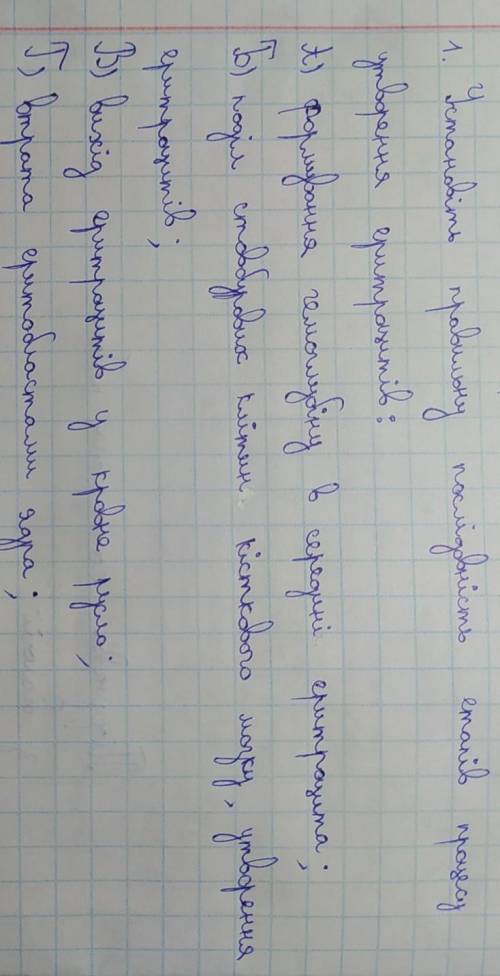 1. Установіть правильну послідовність етапів процесу
утворення еритроцитів:
А) формування гемоглобіну в середині еритроцита;
Б) поділ стовбурових клітин кісткового мозку, утворення
еритроцитів;
В) вихід еритроцитів у кровне русло;
Г) втрата еритобластами ядра;